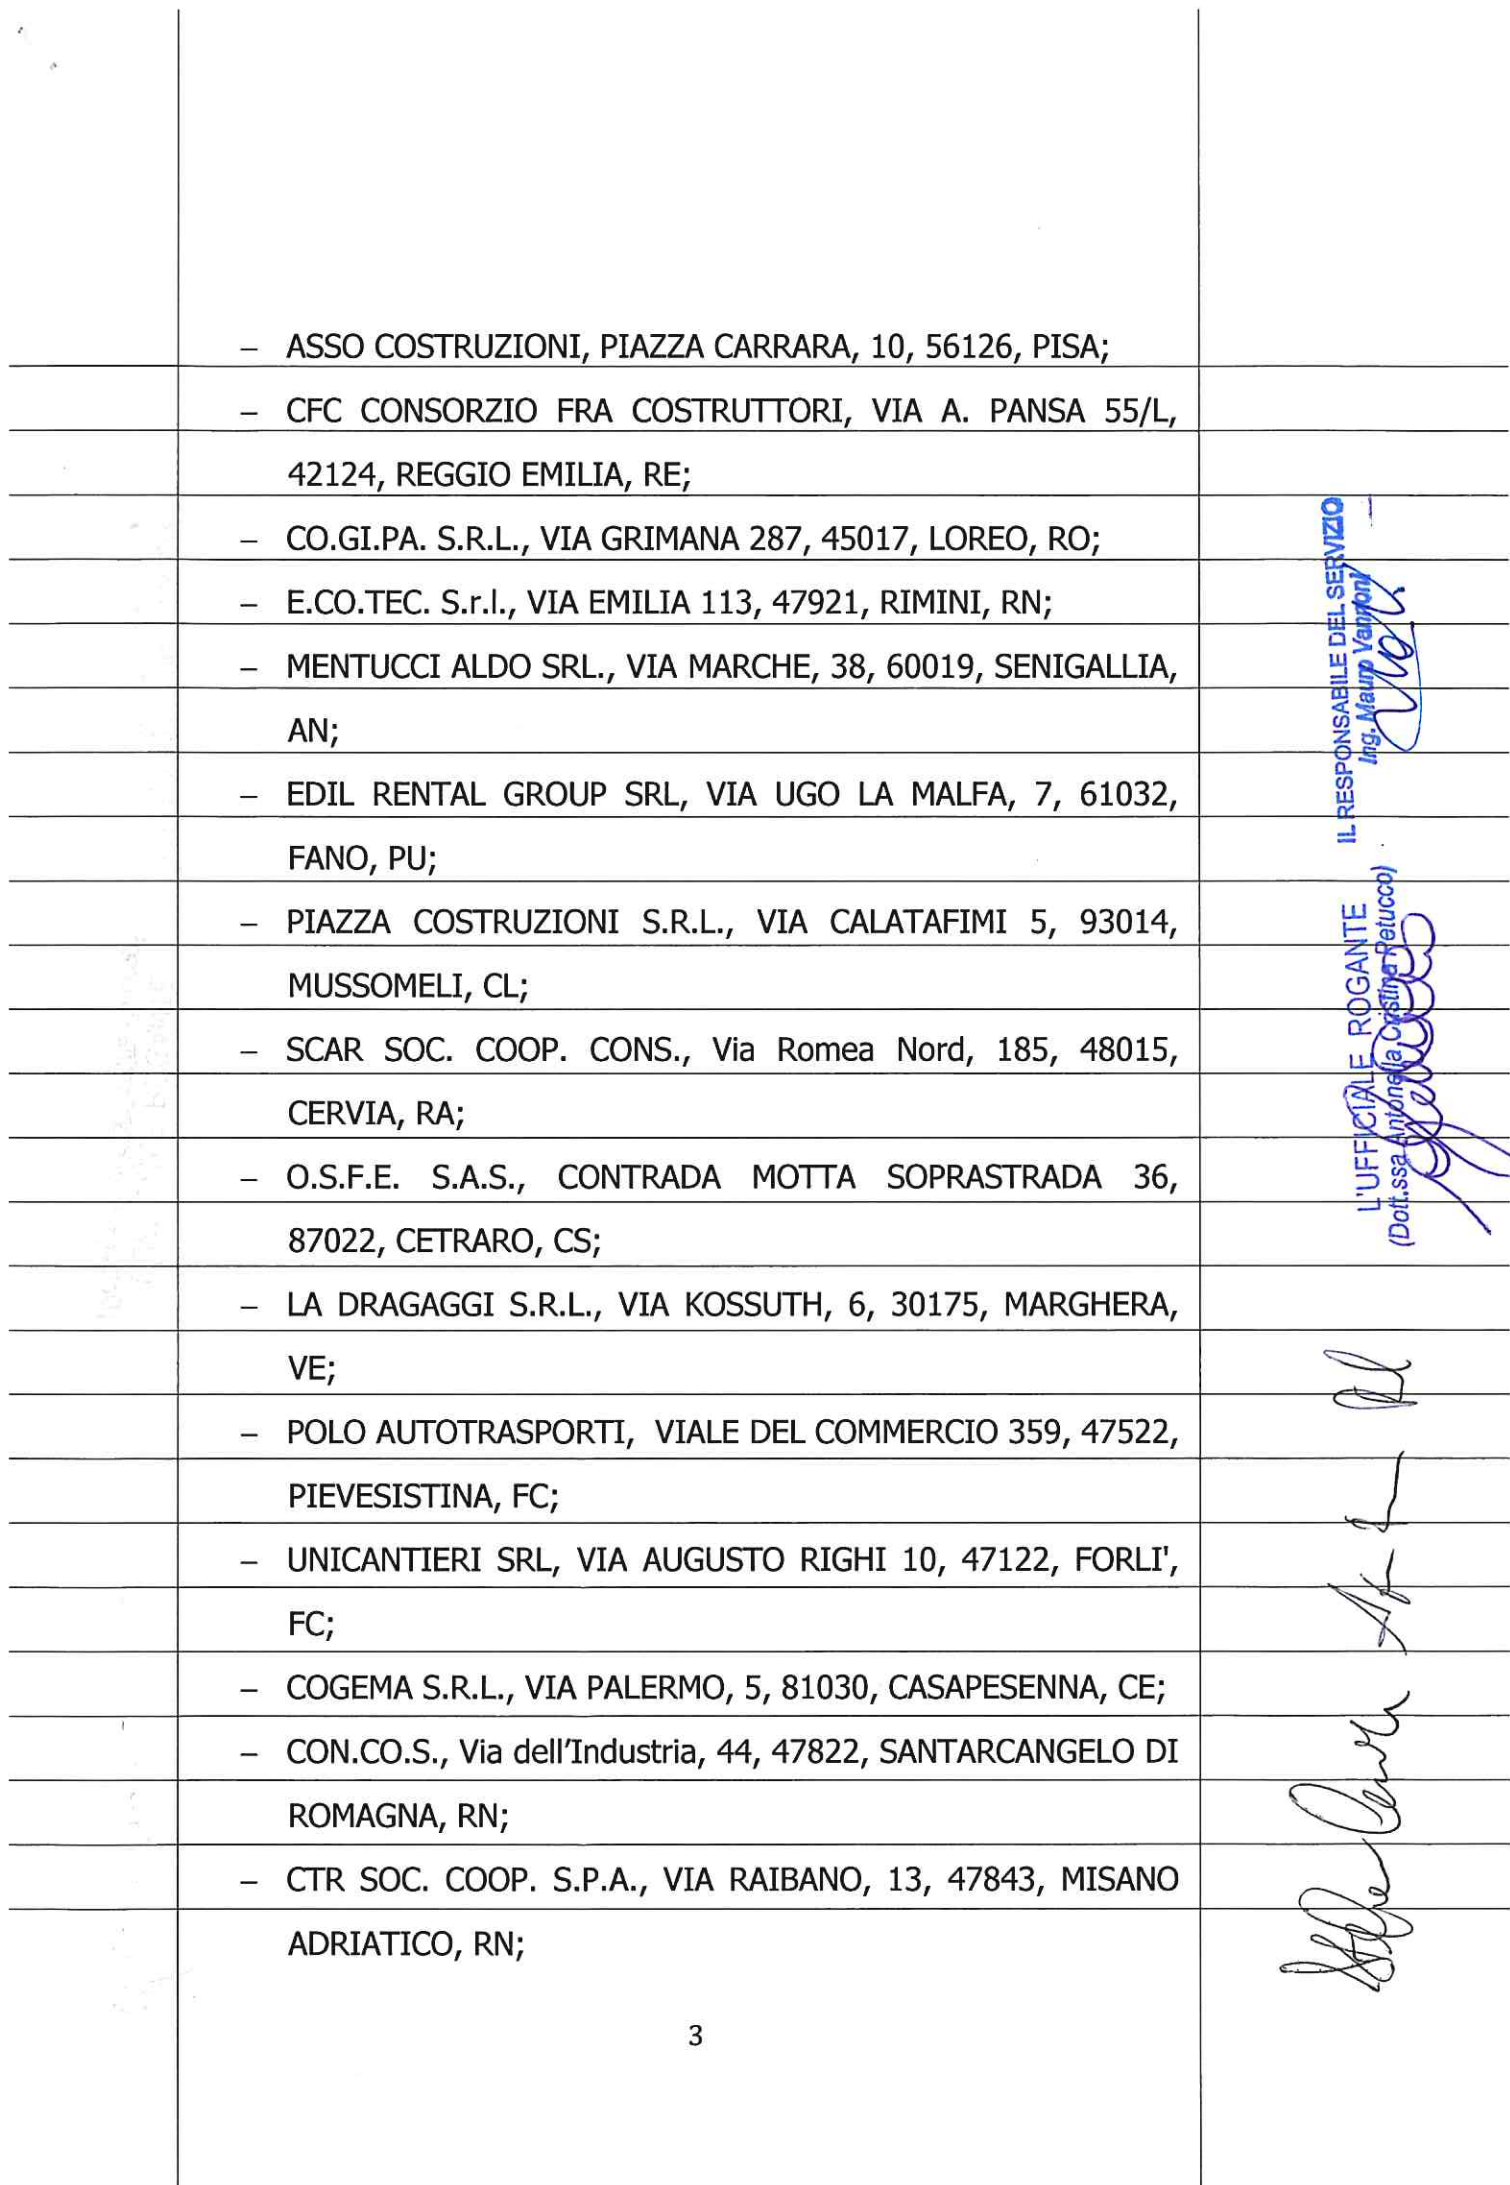 – ASSO COSTRUZIONI, PIAZZA CARRARA, 10, 56126, PISA;
– CFC CONSORZIO FRA COSTRUTTORI, VIA A. PANSA 55/L,
42124, REGGIO EMILIA, RE;
– CO.GI.PA. S.R.L., VIA GRIMANA 287, 45017, LOREO, RO;
– E.CO.TEC. S.r.l., VIA EMILIA 113, 47921, RIMINI, RN;
– MENTUCCI ALDO SRL., VIA MARCHE, 38, 60019, SENIGALLIA,
AN;
– EDIL RENTAL GROUP SRL, VIA UGO LA MALFA, 7, 61032,
FANO, PU;
– PIAZZA COSTRUZIONI S.R.L., VIA CALATAFIMI 5, 93014,
MUSSOMELI, CL;
– SCAR SOC. COOP. CONS., Via Romea Nord, 185, 48015,
CERVIA, RA;
– O.S.F.E. S.A.S., CONTRADA MOTTA SOPRASTRADA 36,
87022, CETRARO, CS;
– LA DRAGAGGI S.R.L., VIA KOSSUTH, 6, 30175, MARGHERA,
VE;
– POLO AUTOTRASPORTI, VIALE DEL COMMERCIO 359, 47522,
PIEVESISTINA, FC;
– UNICANTIERI SRL, VIA AUGUSTO RIGHI 10, 47122, FORLI',
FC;
– COGEMA S.R.L., VIA PALERMO, 5, 81030, CASAPESENNA, CE;
– CON.CO.S., Via dell'Industria, 44, 47822, SANTARCANGELO DI
ROMAGNA, RN;
– CTR SOC. COOP. S.P.A., VIA RAIBANO, 13, 47843, MISANO
ADRIATICO, RN;
3
IL RESPONSABILE DEL SERVIZIO
Ing. Mauro Vannoni
L'UFFICIALE ROGANTE
(Dott.ssa Antonella Cristina Petucco)